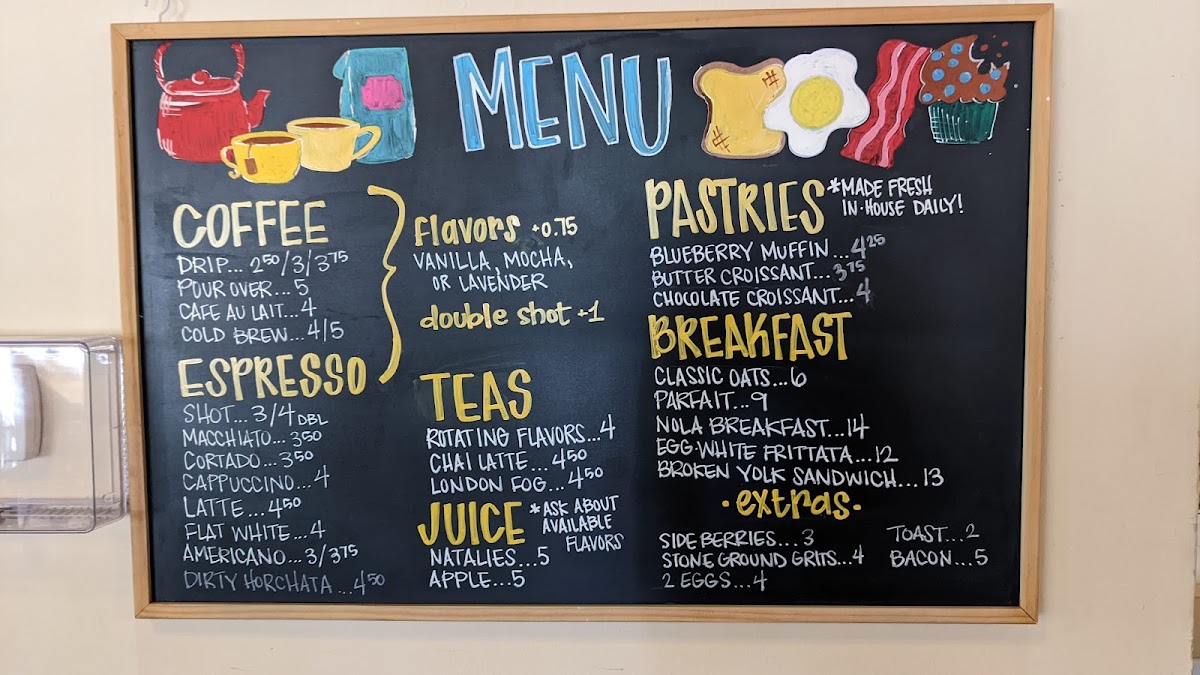 MENU
COFFEE
DRIP... 2⁵⁰/3/3⁷⁵
POUR OVER... 5
CAFE AU LAIT... 4
COLD BREW... 4/5
ESPRESSO
SHOT... 3/4 DBL
MACCHIATO... 3⁵⁰
CORTADO... 3⁵⁰
CAPPUCCINO... 4
LATTE... 4⁵⁰
FLAT WHITE... 4
AMERICANO... 3/3⁷⁵
DIRTY HORCHATA... 4⁵⁰
flavors +0.75
VANILLA, MOCHA,
OR LAVENDER
double shot +1
TEAS
ROTATING FLAVORS... 4
CHAI LATTE... 4⁵⁰
LONDON FOG... 4⁵⁰
JUICE *ASK ABOUT
AVAILABLE
FLAVORS
NATALIES... 5
APPLE... 5
PASTRIES *MADE FRESH
IN-HOUSE DAILY!
BLUEBERRY MUFFIN... 4²⁵
BUTTER CROISSANT... 3⁷⁵
CHOCOLATE CROISSANT... 4
BREAKFAST
CLASSIC OATS... 6
PARFAIT... 9
NOLA BREAKFAST... 14
EGG·WHITE FRITTATA... 12
BROKEN YOLK SANDWICH... 13
·extras·
SIDE BERRIES... 3
STONE GROUND GRITS... 4
2 EGGS... 4
TOAST... 2
BACON... 5